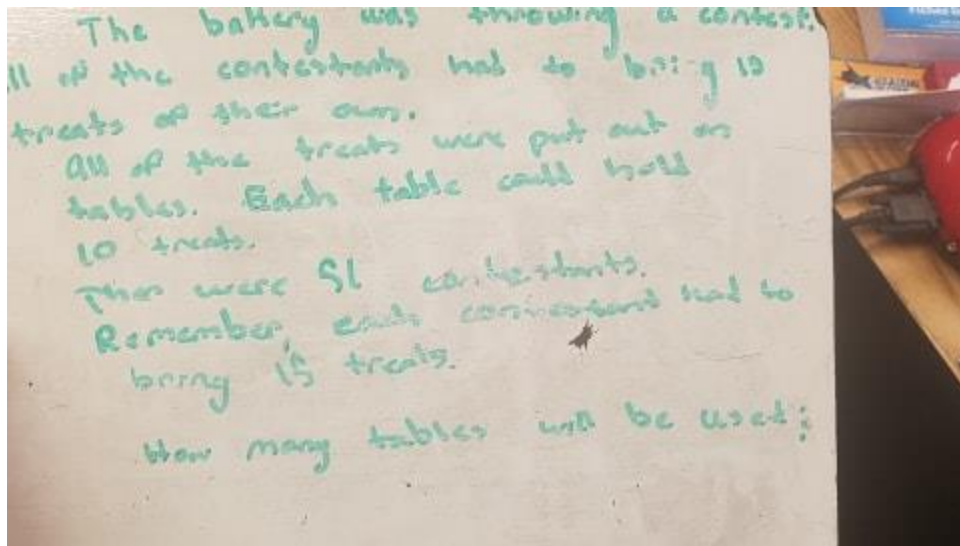 The bakery was throwing a contest.
ll of the contestants had to bring 15
treats of their own.
All of the treats were put out on
tables. Each table could hold
10 treats.
Ther were 51 contestants.
Remember, each contestant had to
bring 15 treats.
How many tables will be used: